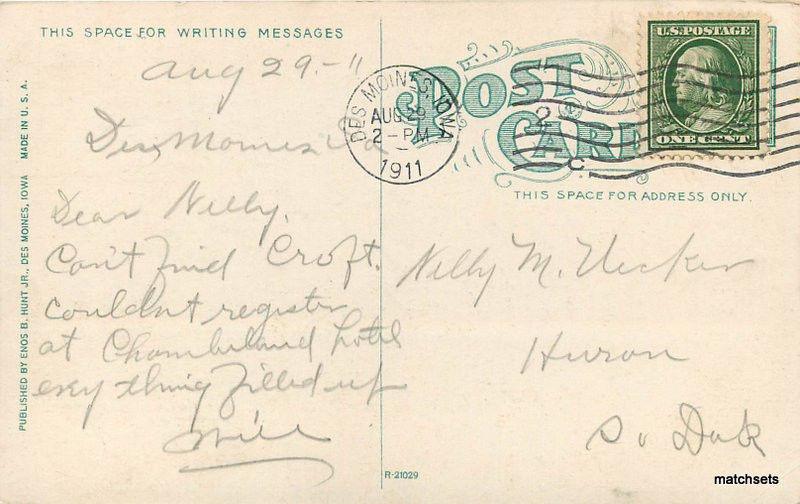 THIS SPACE FOR WRITING MESSAGES
Aug 29-11
Des Moines Ia
Dear Nelly.
Can't find Croft.
couldnt register
at Chamberland hotel
evry thing filled up
Will
PUBLISHED BY ENOS B. HUNT JR., DES MOINES, IOWA MADE IN U.S.A.
POST CARD
DES MOINES, IOWA
AUG 29
2-PM
1911
U.S. POSTAGE
ONE CENT
THIS SPACE FOR ADDRESS ONLY.
Nelly M. Uecker
Huron
So Dak
R-21029
matchsets